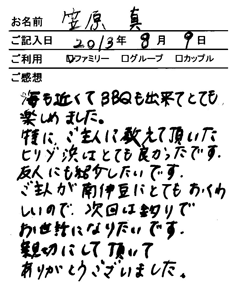 お名前 笠原 真
ご記入日 2013年 8月 9日
ご利用 ☑ファミリー □グループ □カップル
ご感想
海も近くてBBQも出来てとても
楽しめました。
特に、ご主人に教えて頂いた
ヒリゾ浜はとても良かったです。
友人にも紹介したいです。
ご主人が南伊豆にとてもおくわ
しいので、次回は釣りで
お世話になりたいです。
親切にして頂いて
ありがとうございました。